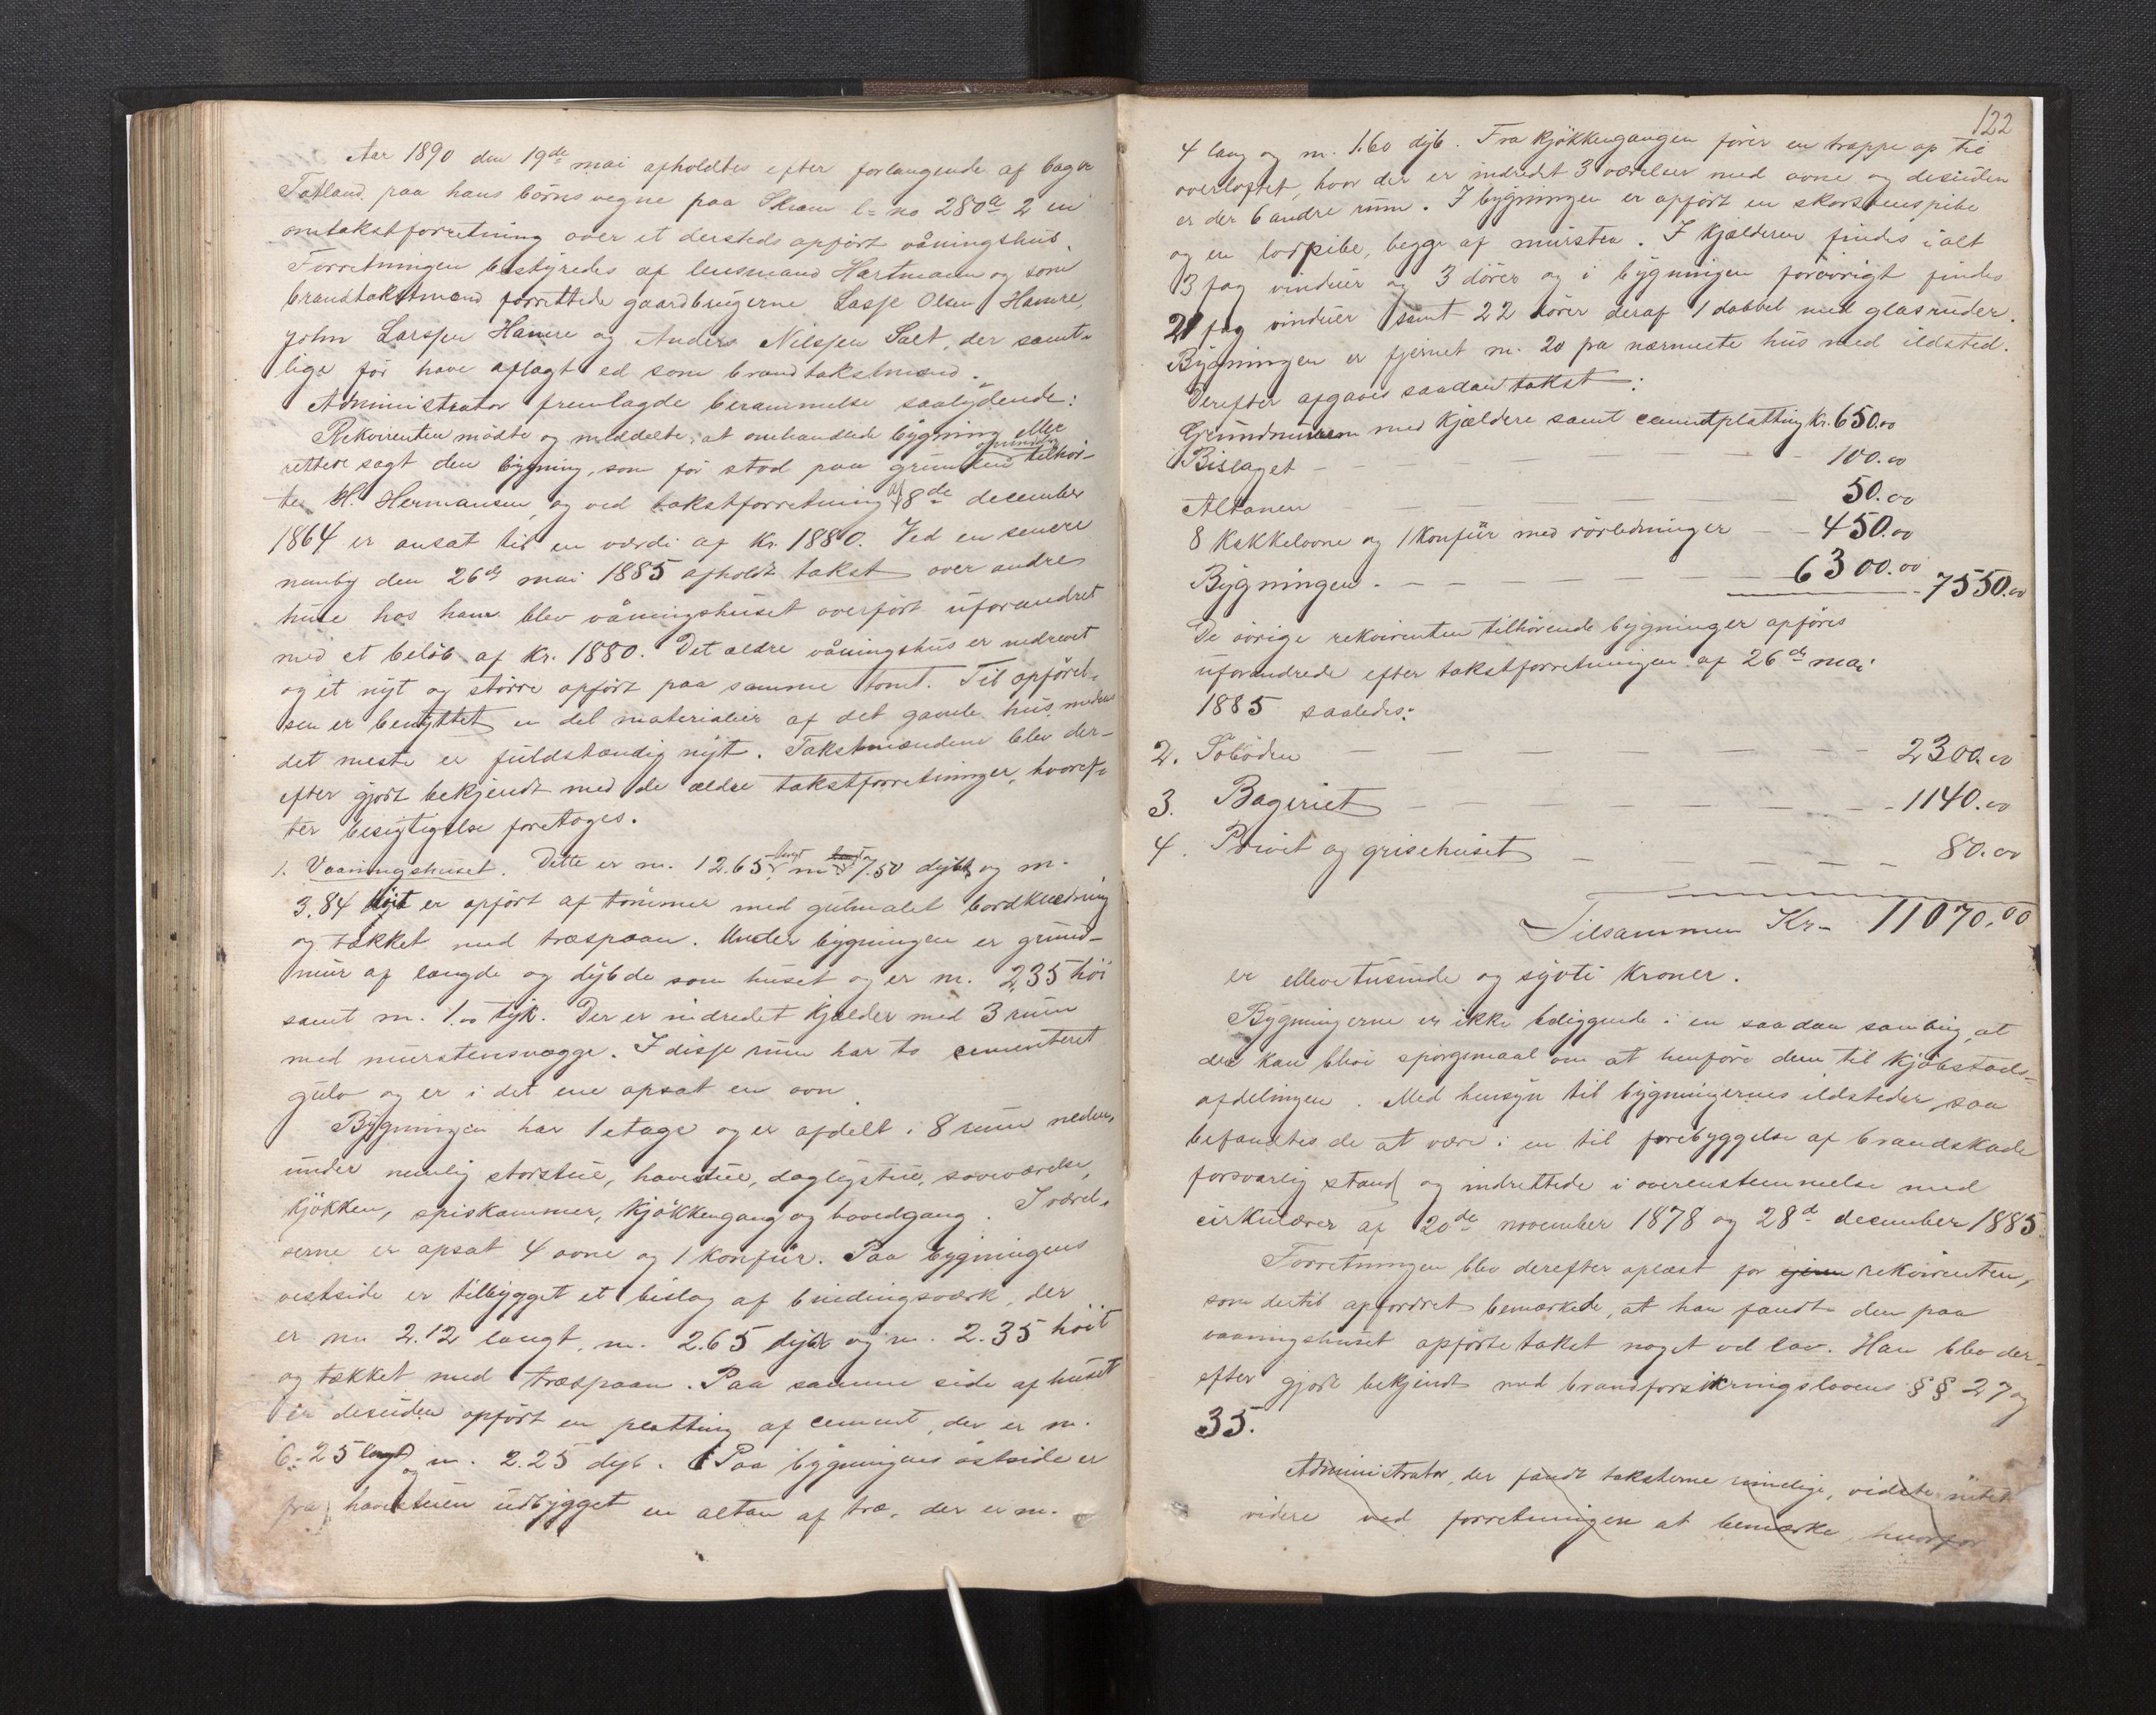 Aar 1890 den 19de mai afholdtes efter forlangende af bager
Tatland paa hans börns vegne paa Skram l= no 280a 2 en
omtakstforretning over et dersteds opfört våningshus.
Forretningen bestyredes af lensmand Hartmann og som
brandtakstmænd forrettede gaardbrugerne Lasse Olsen Hamre,
John Larssen Hamre og Anders Nilssen Salt, der samt-
lige för have aflagt ed som brandtakstmænd.
Administrator fremlagde berammelse saalydende:
Rekvirenten mödte og meddelte, at omhandlede bygning eller
rettere sagt den bygning, som för stod paa grunden tilhör-
te H. Hermansen, og ved takstforretning af 8de december
1864 er ansat til en værdi af Kr. 1880. Ved en senere
nemlig den 26de mai 1885 afholdt takst over andre
huse hos ham blev våningshuset overfört uforandret
med et belöb af Kr. 1880. Det ældre våningshus er nedrevet
og et nyt og större opfört paa samme tomt. Til opförel-
sen er benyttet en del materialier af det gamle hus, medens
det meste er fuldstændig nyt. Takstmændene blev der-
efter gjort bekjendt med de ældre takstforretninger, hvoref-
ter besigtigelse foretoges.
1. Vaaningshuset. Dette er m. 12.65 langt m 7.50 dybt og m.
3.84 höit er opfört af tömmer med gulmalet bordklædning
og tækket med træspaan. Under bygningen er grund-
mur af længde og dybde som huset og er m. 2.35 höi
samt m. 1.00 tyk. Der er indredet kjælder med 3 rum
med murstensvægge. I disse rum har to cementeret
gulv og er i det ene opsat en ovn.
Bygningen har 1 etage og er afdelt i 8 rum neden-
under nemlig storstue, havestue, dagligstue, soveværelse,
kjökken, spiskammer, kjökkengang og hovedgang. I værel-
serne er opsat 4 ovne og 1 konfür. Paa bygningens
vestside er tilbygget et bislag af bindingsværk, der
er m. 2.12 langt, m. 2.65 dybt og m. 2.35 höit
og tækket med træspaan. Paa samme side af huset
er desuden opfört en platting af cement, der er m.
6.25 langt og m. 2.25 dyb. Paa bygningens östside er
fra havestuen udbygget en altan af træ, der er m.
122
4 lang og m. 1.60 dyb. Fra kjökkengangen förer en trappe op til
overloftet, hvor der er indredet 3 værelser med ovne og desuden
er der 6 andre rum. I bygningen er opfört en skorstenspibe
og en lodpibe, begge af mursten. I kjælderen findes ialt
3 fag vinduer og 3 dörer og i bygningen forövrigt findes
21 fag vinduer samt 22 dörer deraf 1 dobbel med glasruder.
Bygningen er fjernet m. 20 fra nærmeste hus med ildsted.
Derefter afgaves saadan takst:
Grundmuren med kjældere samt cementplatting Kr. 650.00
Bislaget — 100.00
Altanen — 50.00
8 kakkelovne og 1 konfür med rörledninger — 450.00
Bygningen — 6300.00 - 7550.00
De övrige rekvirenten tilhörende bygninger opföres
uforandrede efter takstforretningen af 26de mai
1885 saaledes:
2. Söboden — 2300.00
3. Bageriet — 1140.00
4. Privet og grisehuset — 80.00
Tilsammen Kr. 11070.00
er ellevetusinde og syvti kroner.
Bygningerne er ikke beliggende i en saadan samling, at
der kan blive spörgsmaal om at henföre dem til kjöbstads-
afdelingen. Med hensyn til bygningernes ildsteder, saa
befandtes de at være i en til forebyggelse af brandskade
forsvarlig stand og indrettede i overenstemmelse med
cirkulærer af 20de november 1878 og 28de december 1885.
Forretningen blev derefter oplæst for rekvirenten,
som dertil opfordret bemærkede, at han fandt den paa
vaaningshuset opförte takst noget vel lav. Han blev der-
efter gjort bekjendt med brandforsikringslovens §§ 27 og
35.
Administrator, der fandt taksterne rimelige, vidste intet
videre ved forretningen at bemærke, hvorfor